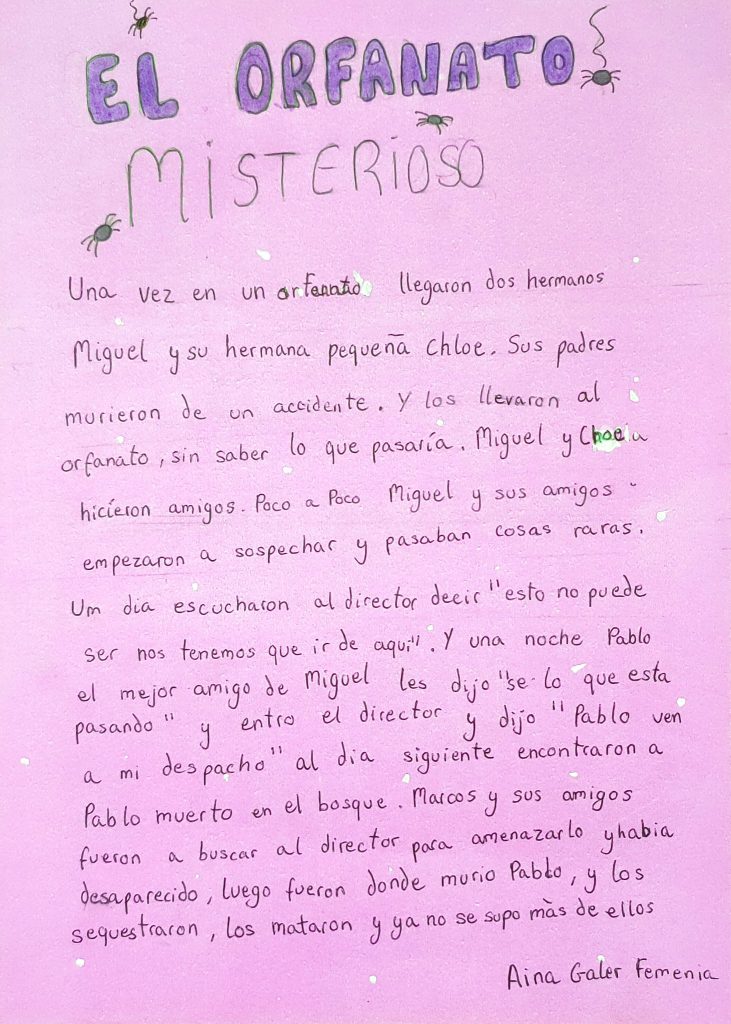 EL ORFANATO
MiSTERiOSO
Una vez en un orfenatio llegaron dos hermanos
Miguel y su hermana pequeña Chloe. Sus padres
murieron de un accidente. Y los llevaron al
orfanato, sin saber lo que pasaría. Miguel y Choe
hicieron amigos. Poco a Poco Miguel y sus amigos
empezaron a sospechar y pasaban cosas raras.
Um dia escucharon al director decir "esto no puede
ser nos tenemos que ir de aqui". Y una noche Pablo
el mejor amigo de Miguel les dijo "se lo que esta
pasando" y entro el director y dijo "Pablo ven
a mi despacho" al dia siguiente encontraron a
Pablo muerto en el bosque. Marcos y sus amigos
fueron a buscar al director para amenazarlo yhabia
desaparecido, luego fueron donde murio Pablo, y los
sequestraron, los mataron y ya no se supo màs de ellos
Aina Galer Femenia